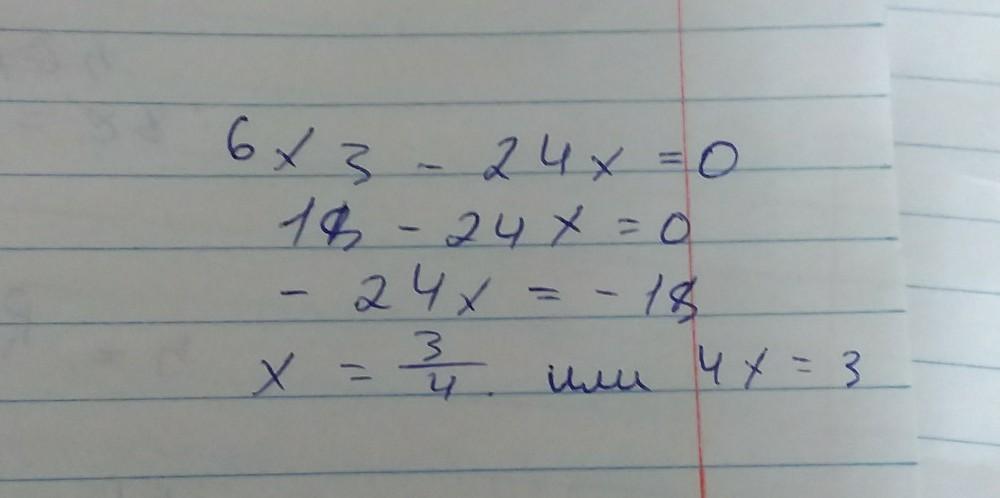 6x3 - 24x = 0
18 - 24x = 0
- 24x = - 18
x = 3/4. или 4x = 3